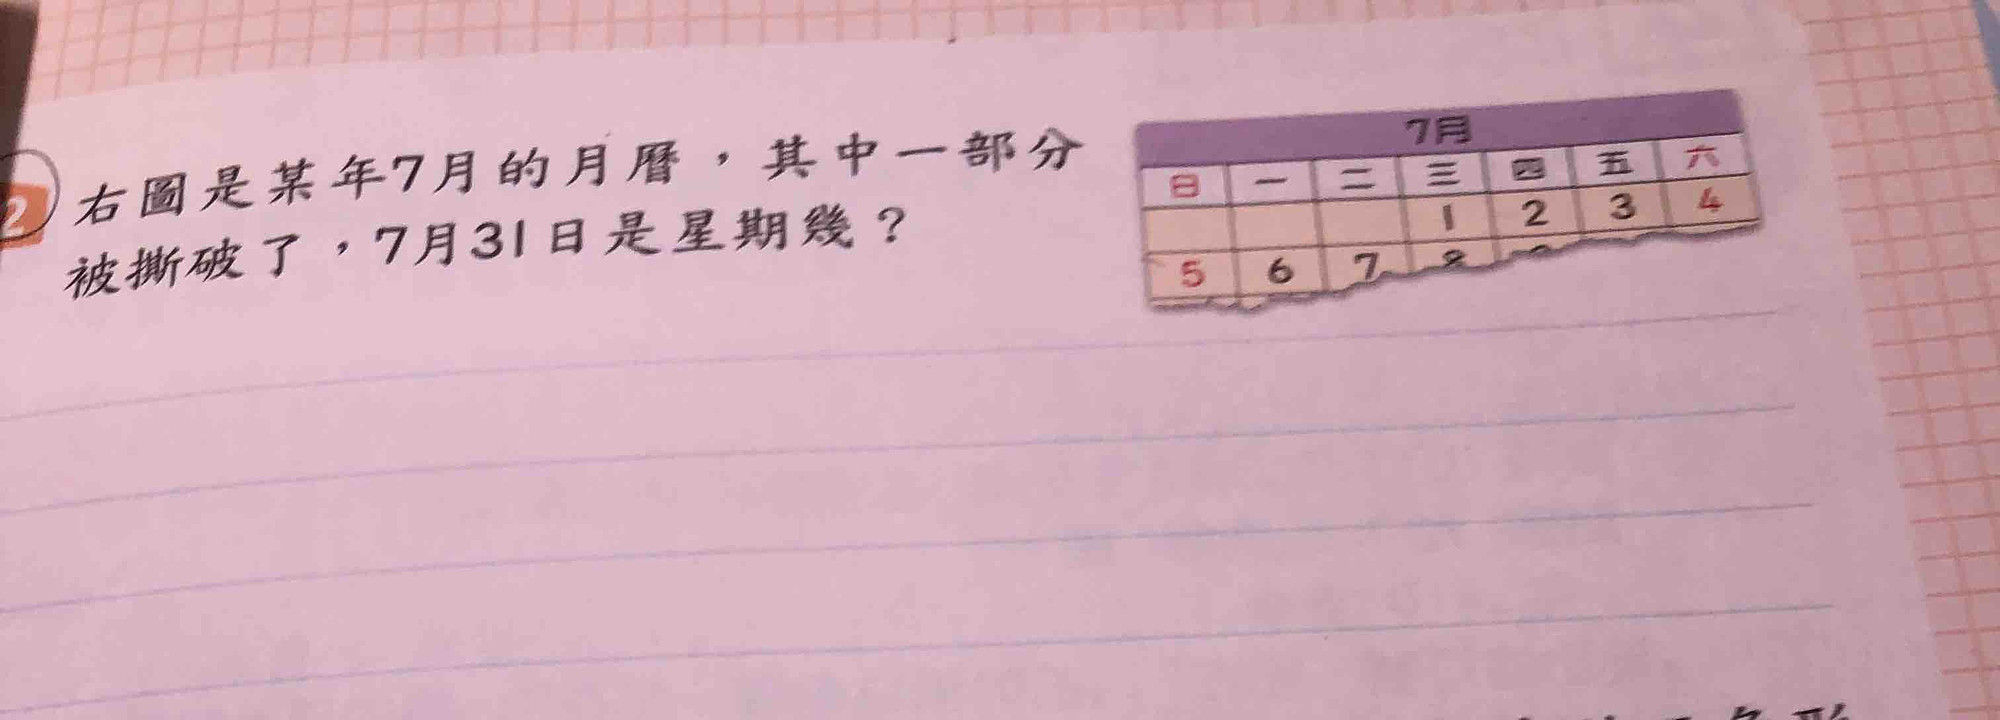 2 右圖是某年7月的月曆，其中一部分
被撕破了，7月31日是星期幾？
7月
日 一 二 三 四 五 六
1 2 3 4
5 6 7 8